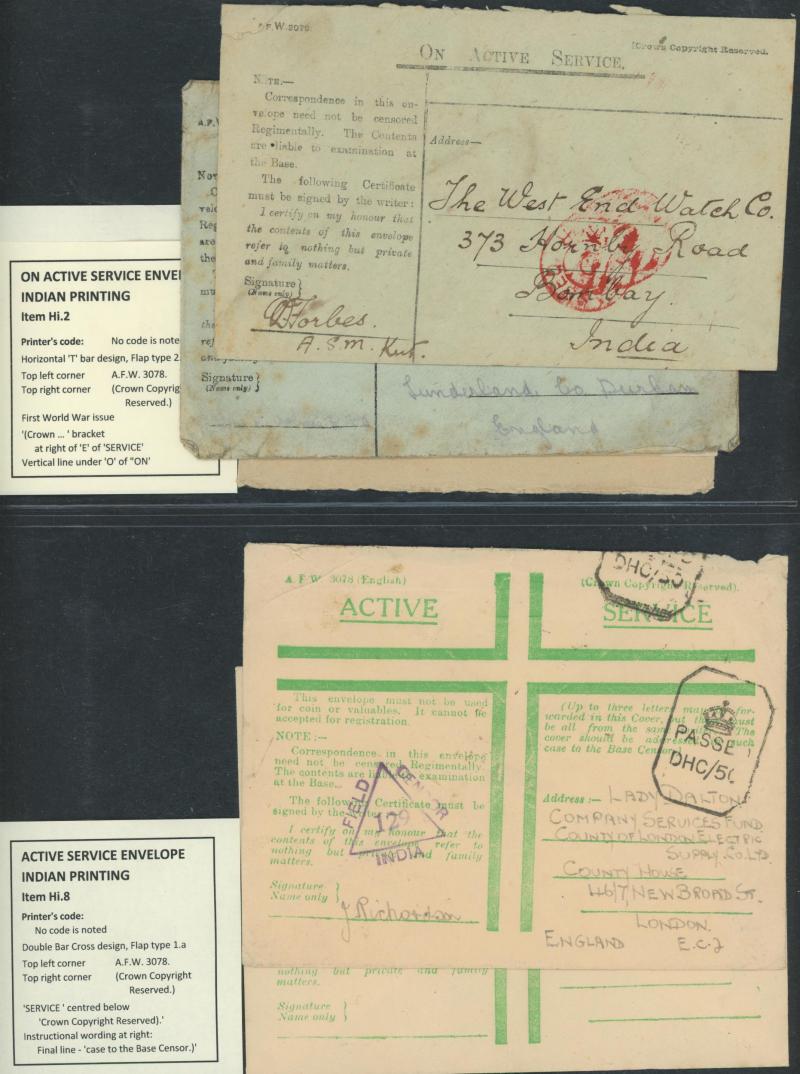 A.F.W. 3078.
(Crown Copyright Reserved.
ON ACTIVE SERVICE.
NOTE.—
Correspondence in this en-
velope need not be censored
Regimentally. The Contents
are liable to examination at
the Base.
The following Certificate
must be signed by the writer:
I certify on my honour that
the contents of this envelope
refer to nothing but private
and family matters.
Signature
(Name only)
Forbes.
A.S.M. Kut.
Address—
The West End Watch Co.
373 Hornby Road
Bombay.
India
Signature
(Name only)
Sunderland, Co Durham
England
ON ACTIVE SERVICE ENVE
INDIAN PRINTING
Item Hi.2
Printer's code: No code is noted
Horizontal 'T' bar design, Flap type 2.
Top left corner A.F.W. 3078.
Top right corner (Crown Copyrig
Reserved.)
First World War issue
'(Crown ... ' bracket
at right of 'E' of 'SERVICE'
Vertical line under 'O' of "ON'
A.F.W. 3078 (English)
(Crown Copyright Reserved).
ACTIVE SERVICE
DHC/50
This envelope must not be used
for coin or valuables. It cannot be
accepted for registration.
NOTE :—
Correspondence in this envelope
need not be censored Regimentally.
The contents are liable to examination
at the Base.
The following Certificate must be
signed by the Writer:
I certify on my honour that the
contents of this envelope refer to
nothing but private and family
matters.
Signature
Name only
J Richardson
FIELD CENSOR
129
INDIA
(Up to three letters may be for-
warded in this Cover, but they must
be all from the same The
cover should be addressed such
case to the Base Censor
PASSE
DHC/50
Address :— LADY DALTON'S
COMPANY SERVICES FUND
COUNTY OF LONDON ELECTRIC
SUPPLY. CO. LTD.
COUNTY HOUSE
46/7, NEW BROAD ST.
LONDON.
ENGLAND E.C.2
nothing but private and family
matters.
Signature
Name only
ACTIVE SERVICE ENVELOPE
INDIAN PRINTING
Item Hi.8
Printer's code:
No code is noted
Double Bar Cross design, Flap type 1.a
Top left corner A.F.W. 3078.
Top right corner (Crown Copyright
Reserved.)
'SERVICE ' centred below
'Crown Copyright Reserved).'
Instructional wording at right:
Final line - 'case to the Base Censor.)'